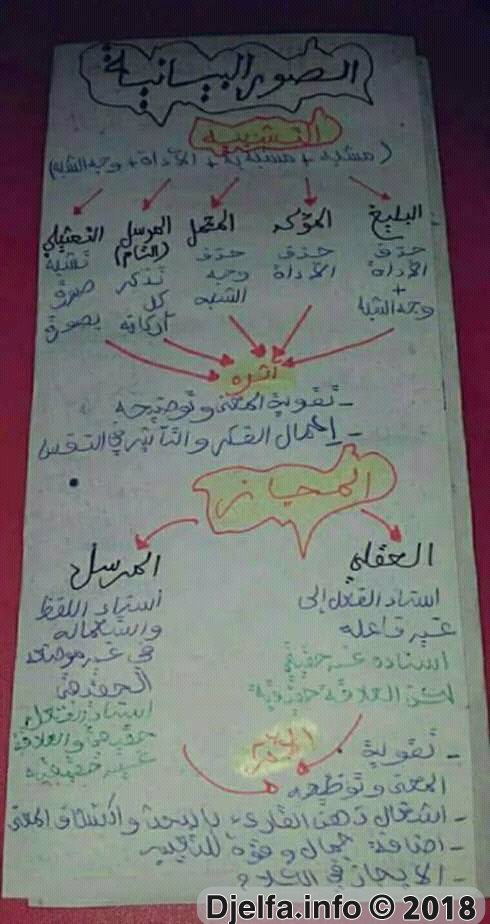 الصور البيانية
التشبيه
(مشبه + مشبه به + الأداة + وجه الشبه)
البليغ
حذف
الأداة
+
وجه الشبه
المؤكد
حذف
الأداة
المجمل
حذف
وجه
الشبه
المرسل
(التام)
تذكر
كل
أركانه
التمثيلي
تشبيه
صورة
بصورة
أثره
- تقوية المعنى وتوضيحه
- إعمال الفكر والتأثير في النفس
المجاز
العقلي
اسناد الفعل إلى
غير فاعله
اسناده غير حقيقي
لكن العلاقة حقيقية
المرسل
اسناد اللفظ
واستعماله
في غير موضعه
الحقيقي
اسناد
حقيقي والعلاقة
غير حقيقية
الأثر
- تقوية
المعنى وتوضيحه
- انشغال ذهن القارىء بالبحث واكتشاف المعنى
- اضافة جمال وقوة للتعبير
- الايجاز في الكلام
Djelfa.info © 2018